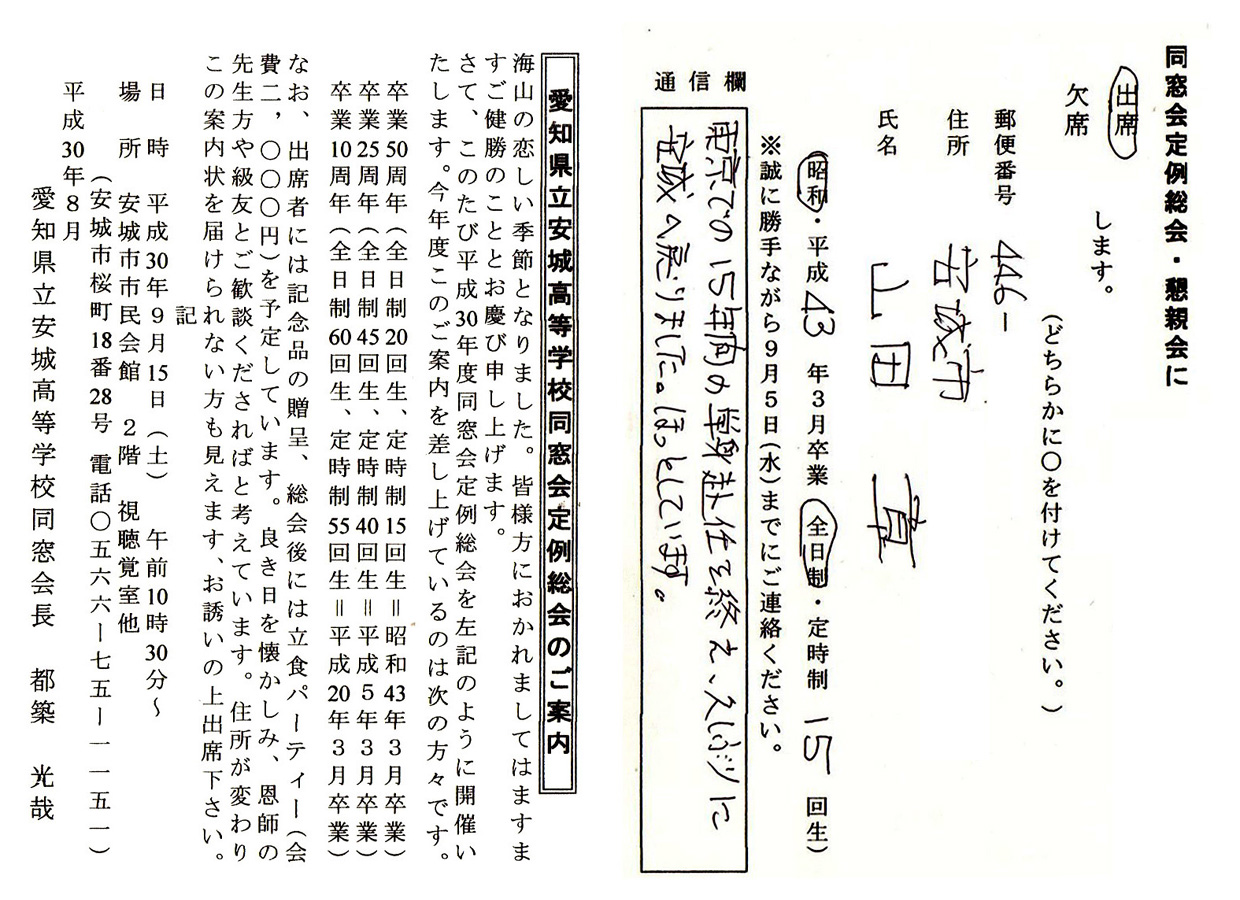 同窓会定例総会・懇親会に
出席
欠席
します。
(どちらかに○を付けてください。)
郵便番号 446-
住所 安城市
氏名 山田 眞
昭和・平成 43 年3月卒業 全日制・定時制 15 回生)
※誠に勝手ながら9月5日(水)までにご連絡ください。
通信欄
東京での15年間の単身赴任を終え、久しぶりに
安城へ戻りました。ほっとしています。
愛知県立安城高等学校同窓会定例総会のご案内
海山の恋しい季節となりました。皆様方におかれましてはますま
すご健勝のこととお慶び申し上げます。
さて、このたび平成30年度同窓会定例総会を左記のように開催い
たします。今年度このご案内を差し上げているのは次の方々です。
卒業50周年(全日制20回生、定時制15回生=昭和43年3月卒業)
卒業25周年(全日制45回生、定時制40回生=平成5年3月卒業)
卒業10周年(全日制60回生、定時制55回生=平成20年3月卒業)
なお、出席者には記念品の贈呈、総会後には立食パーティー(会
費二,〇〇〇円)を予定しています。良き日を懐かしみ、恩師の
先生方や級友とご歓談くださればと考えています。住所が変わり
この案内状を届けられない方も見えます、お誘いの上出席下さい。
記
日 時 平成30年9月15日(土) 午前10時30分~
場 所 安城市市民会館 2階 視聴覚室他
(安城市桜町18番28号 電話〇五六六ー七五ー一一五一)
平成30年8月
愛知県立安城高等学校同窓会長 都築 光哉